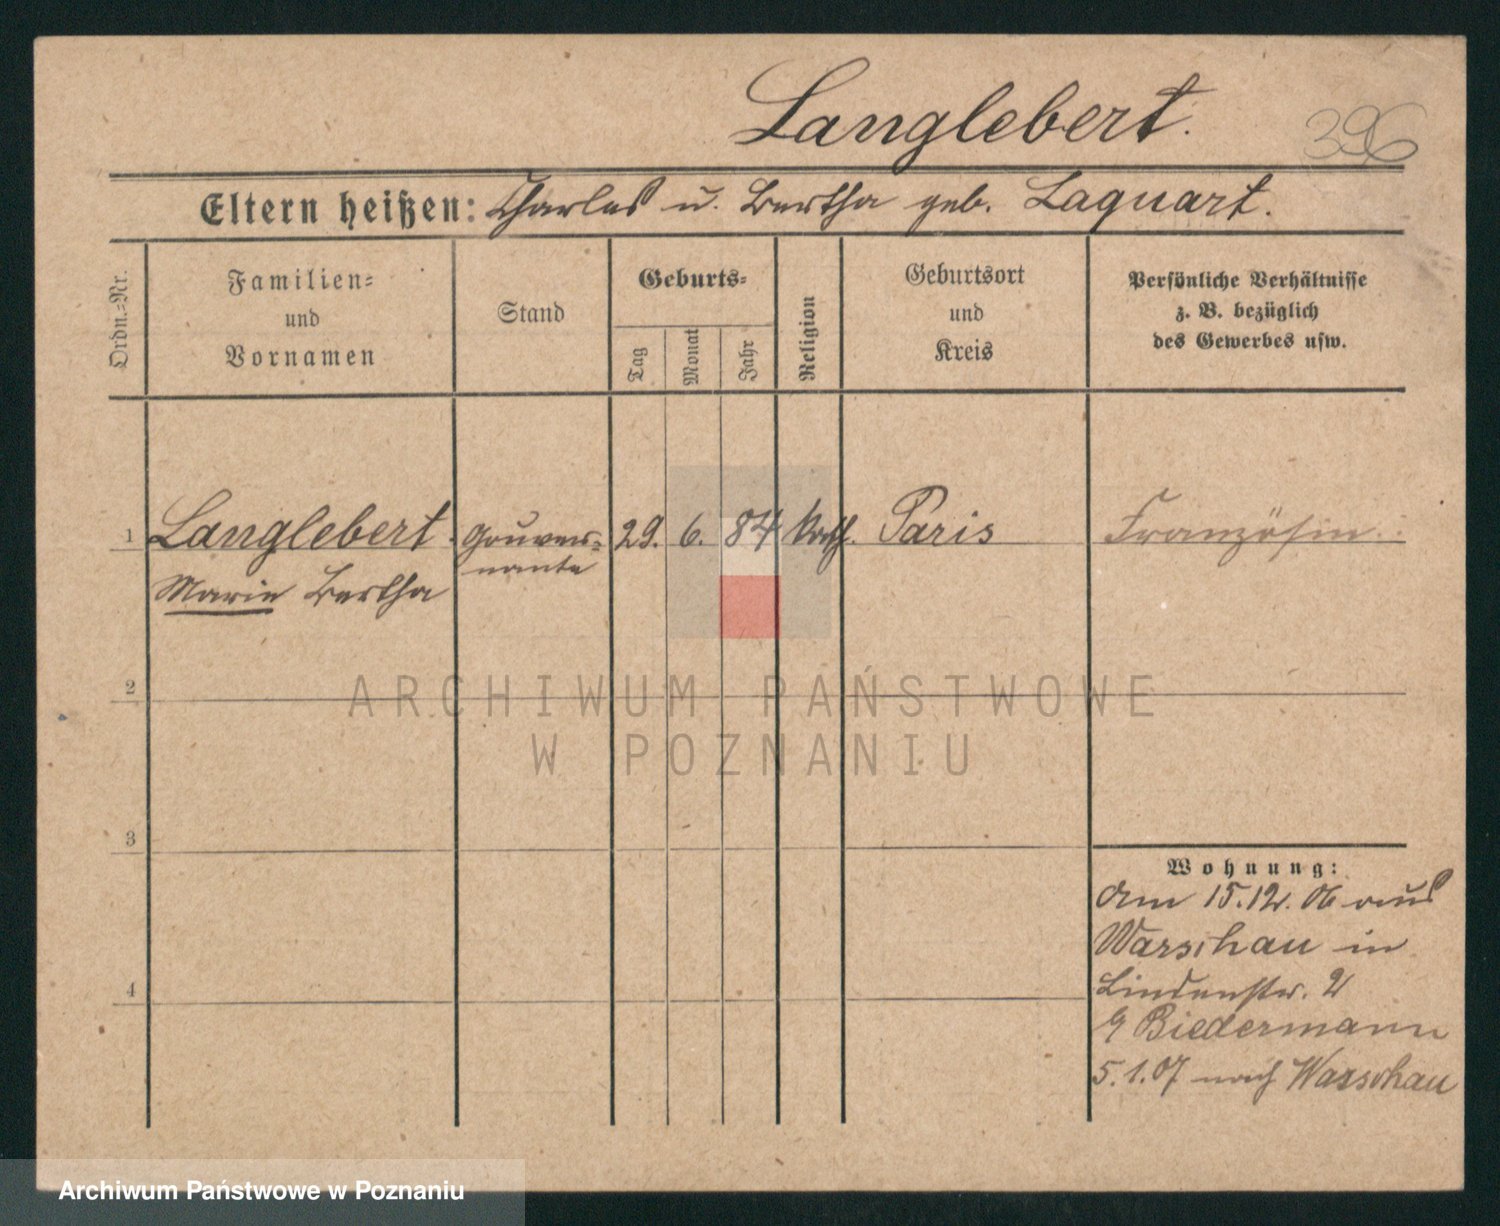 Langlebert.
396
Eltern heißen: Charles u. Bertha geb. Laquart.
Ordn.=Nr.
Familien=
und
Vornamen
Stand
Geburts=
Tag
Monat
Jahr
Religion
Geburtsort
und
Kreis
Persönliche Verhältnisse
z. B. bezüglich
des Gewerbes usw.
1
Langlebert.
Marie Bertha
Gouver=
nante
29. 6. 84 kath. Paris
Französin.
2
ARCHIWUM PAŃSTWOWE
W POZNANIU
3
Wohnung:
Am 15.12.06 aus
Warschau in
Lindenstr. 2
Biedermann
5.1.07 nach Warschau
4
Archiwum Państwowe w Poznaniu